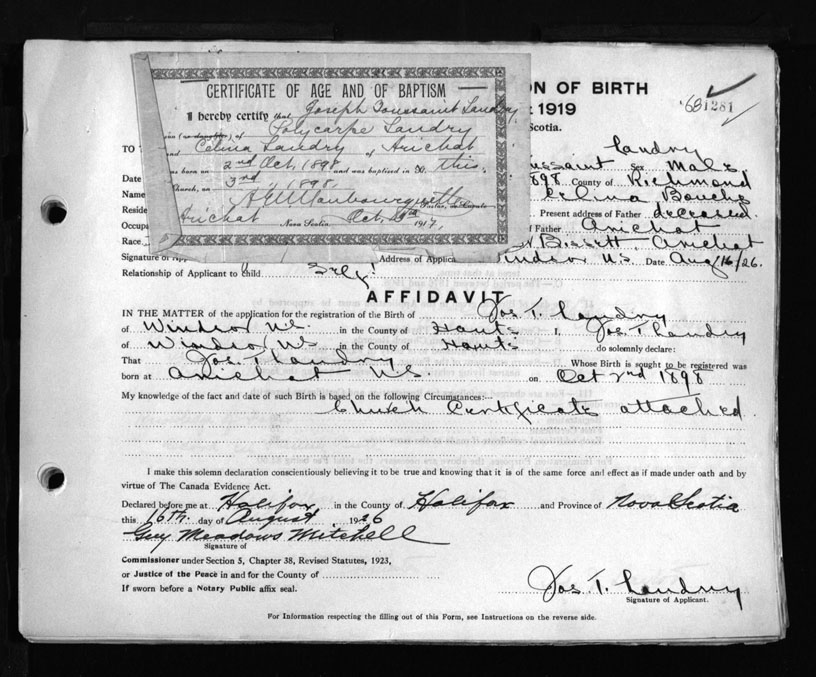 CERTIFICATE OF AGE AND OF BAPTISM
I hereby certify that Joseph Toussaint Landry
of Polycarpe Landry
and Celina Landry of Arichat
was born on 2nd Oct, 1898 and was baptised in this
Church, on 3rd " 1898
Arichat Nova Scotia Oct. 1917,
ON OF BIRTH
1919
Scotia.
68 1281
TO
Landry
ussaint Sex Male
Date
898 County of Richmond
Name
Celina Bouche
Reside
Present address of Father deceased
Occupa
f Father Arichat
Race
Bissett, Arichat
Signature of Ap Address of Applica Windsor N.S. Date Aug 16/26.
Relationship of Applicant to child Self
AFFIDAVIT
IN THE MATTER of the application for the registration of the Birth of Jos. T. Landry
of Windsor N.S. in the County of Hants I, Jos. T Landry
of Windsor N.S. in the County of Hants do solemnly declare:
That Jos. T Landry Whose Birth is sought to be registered was
born at Arichat N.S. on Oct 2nd 1898
My knowledge of the fact and date of such Birth is based on the following Circumstances:—
Church Certificate attached
I make this solemn declaration conscientiously believing it to be true and knowing that it is of the same force and effect as if made under oath and by
virtue of The Canada Evidence Act.
Declared before me at Halifax in the County of Halifax and Province of Nova Scotia
this 16th day of August 1926
Guy Meadows Mitchell
Signature of
Commissioner under Section 5, Chapter 38, Revised Statutes, 1923,
or Justice of the Peace in and for the County of
If sworn before a Notary Public affix seal.
Jos. T. Landry
Signature of Applicant.
For Information respecting the filling out of this Form, see Instructions on the reverse side.